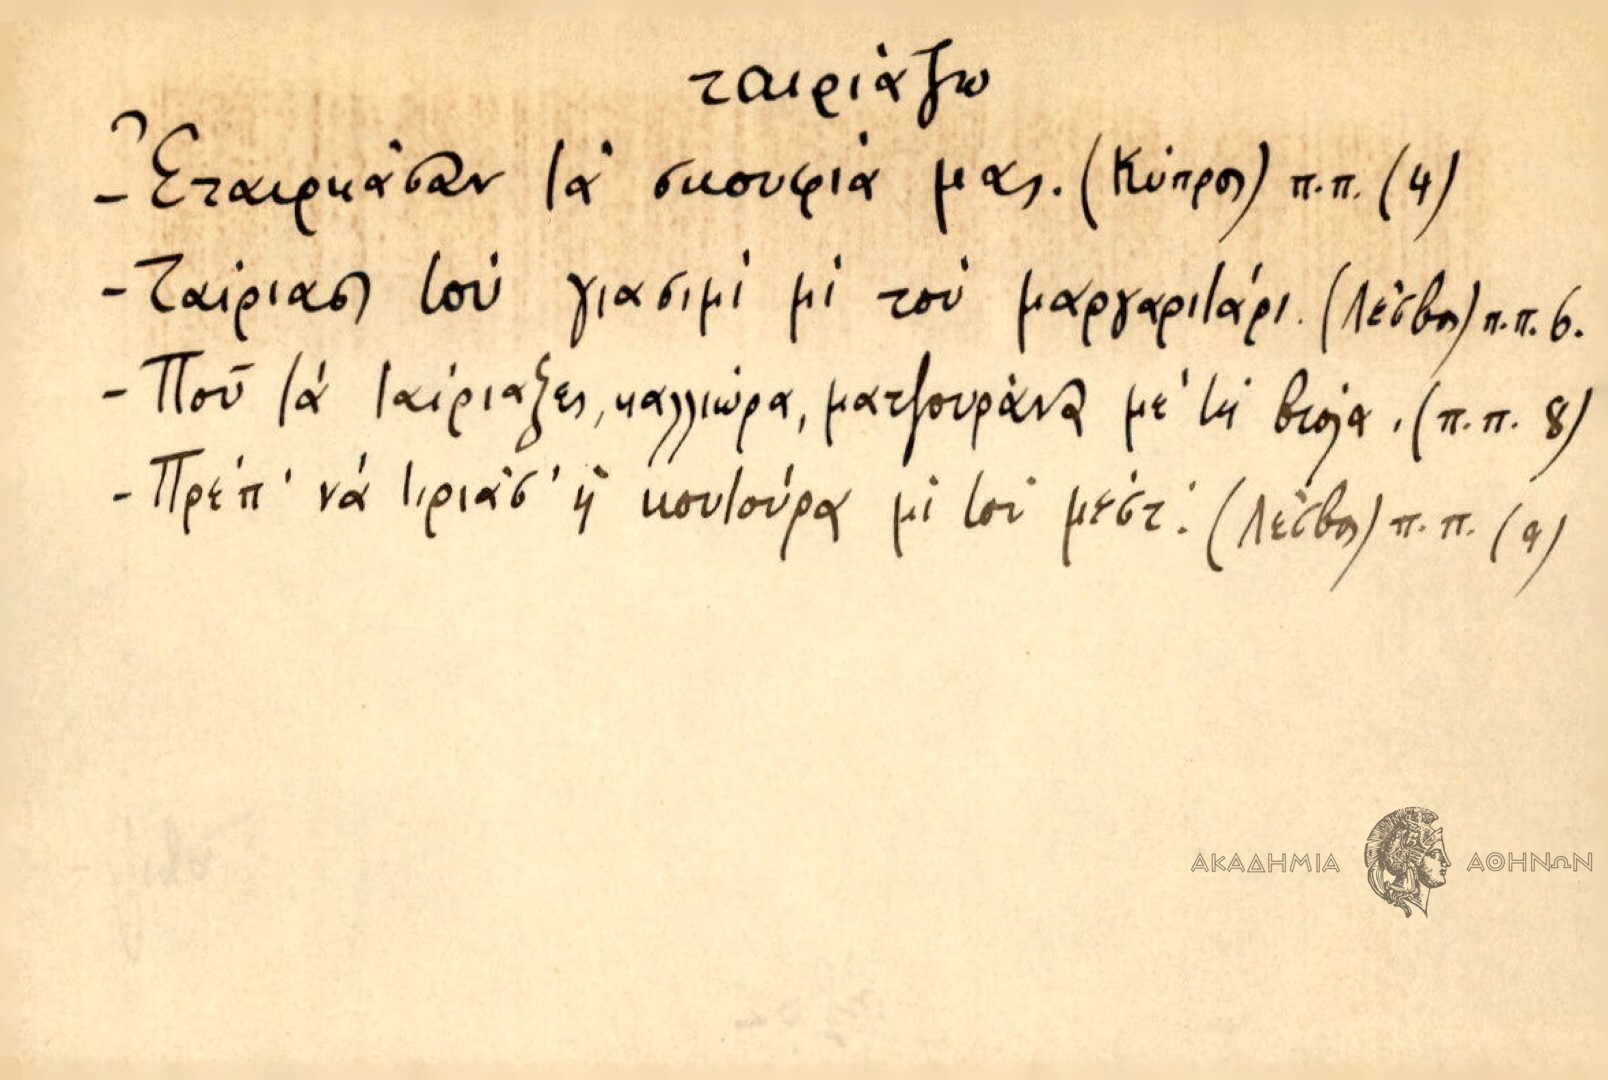 ταιριάζω
- Ἐταιρκάσαν τὰ σκουφιά μας. (Κύπρος) π.π. (4)
- Ταίριασι τοὺ γιασιμὶ μὶ τοὺ μαργαριτάρι. (Λέσβος) π.π. 6.
- Ποῦ τά ταίριαξες, καλλιώρα, ματζουράνα μέ τή βιόλα. (π.π. 8)
- Πρέπ' νά τιριάσ' ἡ κουτούρα μὶ τοὺ μέστ'. (Λέσβος) π.π. (9)
ΑΚΑΔΗΜΙΑ ΑΘΗΝΩΝ